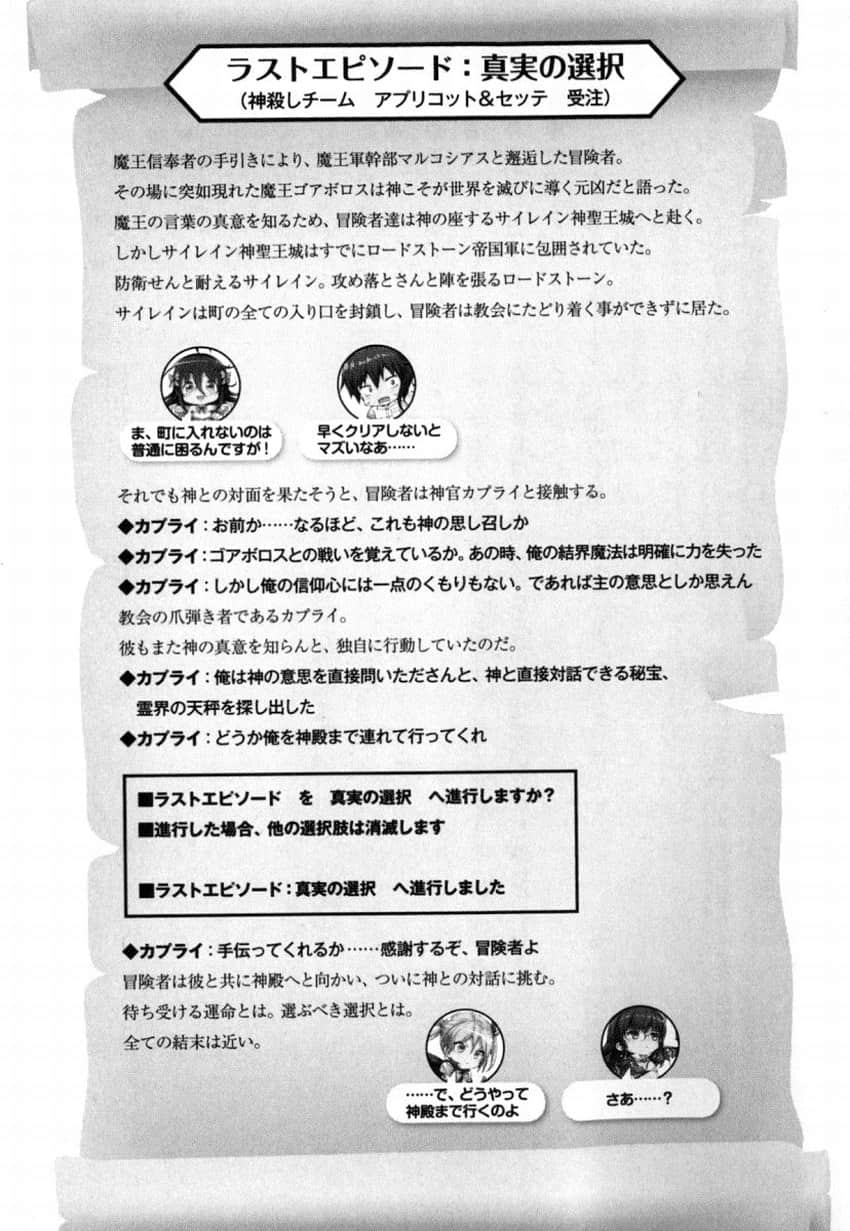 ラストエピソード：真実の選択
（神殺しチーム　アプリコット＆セッテ　受注）
魔王信奉者の手引きにより、魔王軍幹部マルコシアスと邂逅した冒険者。
その場に突如現れた魔王ゴアボロスは神こそが世界を滅びに導く元凶だと語った。
魔王の言葉の真意を知るため、冒険者達は神の座するサイレイン神聖王城へと赴く。
しかしサイレイン神聖王城はすでにロードストーン帝国軍に包囲されていた。
防衛せんと耐えるサイレイン。攻め落とさんと陣を張るロードストーン。
サイレインは町の全ての入り口を封鎖し、冒険者は教会にたどり着く事ができずに居た。
ま、町に入れないのは
普通に困るんですが！
早くクリアしないと
マズいなあ……
それでも神との対面を果たそうと、冒険者は神官カブライと接触する。
◆カブライ：お前か……なるほど、これも神の思し召しか
◆カブライ：ゴアボロスとの戦いを覚えているか。あの時、俺の結界魔法は明確に力を失った
◆カブライ：しかし俺の信仰心には一点のくもりもない。であれば主の意思としか思えん
教会の爪弾き者であるカブライ。
彼もまた神の真意を知らんと、独自に行動していたのだ。
◆カブライ：俺は神の意思を直接問いたださんと、神と直接対話できる秘宝、
霊界の天秤を探し出した
◆カブライ：どうか俺を神殿まで連れて行ってくれ
■ラストエピソード　を　真実の選択　へ進行しますか？
■進行した場合、他の選択肢は消滅します
■ラストエピソード：真実の選択　へ進行しました
◆カブライ：手伝ってくれるか……感謝するぞ、冒険者よ
冒険者は彼と共に神殿へと向かい、ついに神との対話に挑む。
待ち受ける運命とは。選ぶべき選択とは。
全ての結末は近い。
……で、どうやって
神殿まで行くのよ
さあ……？